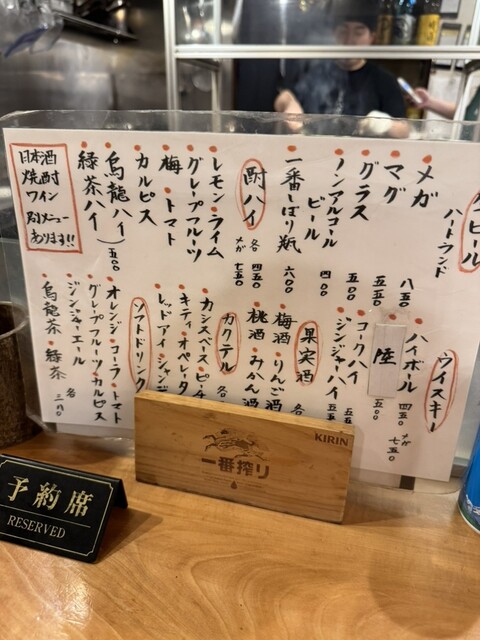 ビール
ハートランド
・メガ 八五〇
・マグ 五五〇
・グラス
・ノンアルコール
ビール 四〇〇
・一番しぼり瓶 六〇〇
酎ハイ 各四五〇
メガ 七五〇
・レモン・ライム
・グレープフルーツ
・梅・トマト
・カルピス
・烏龍ハイ
・緑茶ハイ 五〇〇
日本酒
焼酎
ワイン
別メニュー
あります!!
ウイスキー
・ハイボール 四五〇 メガ 七五〇
陸 五〇〇
・コークハイ
・ジンジャーハイ
果実酒
・梅酒・りんご酒
・桃酒・みかん酒
カクテル
・カシス・ベース・ピーチ
・キティ・オペレータ
・レッドアイ・シャンディ
ソフトドリンク
・オレンジ・コーラ・トマト
・グレープフルーツ・カルピス
・ジンジャエール 各
・烏龍茶・緑茶
KIRIN
一番搾り
予約席
RESERVED